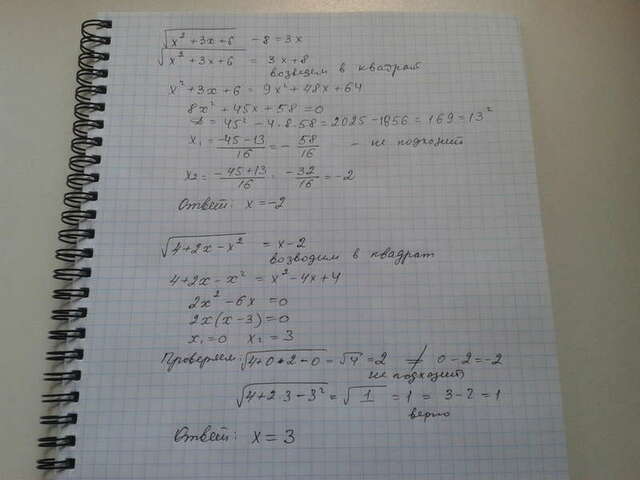 √(x² + 3x + 6) - 8 = 3x
√(x² + 3x + 6) = 3x + 8
возведем в квадрат
x² + 3x + 6 = 9x² + 48x + 64
8x² + 45x + 58 = 0
D = 45² - 4·8·58 = 2025 - 1856 = 169 = 13²
x₁ = (-45-13)/16 = - 58/16 - не подходит
x₂ = (-45+13)/16 = -32/16 = -2
Ответ: x = -2
√(4 + 2x - x²) = x - 2
возводим в квадрат
4 + 2x - x² = x² - 4x + 4
2x² - 6x = 0
2x(x - 3) = 0
x₁ = 0 x₂ = 3
Проверяем: √(4+0•2-0) = √4 = 2 ≠ 0 - 2 = -2
не подходит
√(4 + 2·3 - 3²) = √1 = 1 = 3 - 2 = 1
верно
Ответ: x = 3